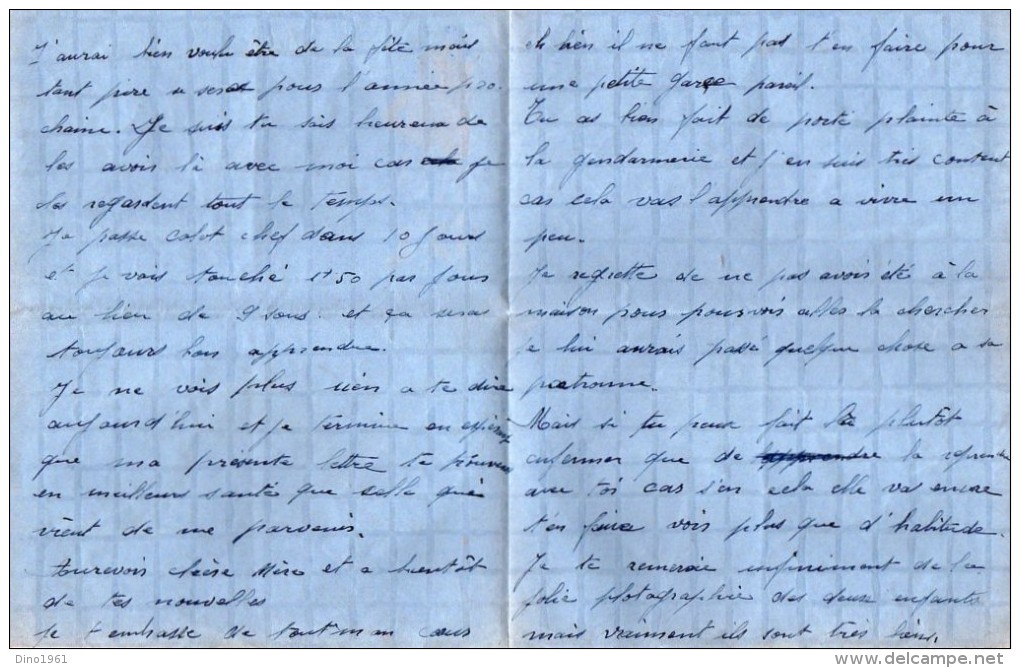 J'aurai bien voulu être de la fête mais
tant pire se sera pour l'année pro-
chaine. Je suis tu sais heureux de
les avoir là avec moi car je
les regardent tout le temps.
Je passe calot chef dans 10 jours
et je vais touché 1f50 par jours
au lieu de 9 sous et ça seras
toujours bon apprendre.
Je ne vois plus rien a te dire
aujourd'hui et je termine en espérant
que ma présente lettre te trouveras
en meilleurs santée que celle qui
vient de me parvenir.
Aurevoir chère Mère et a bientôt
de tes nouvelles
Je t'embrasse de tout mon cœur
eh bien il ne faut pas t'en faire pour
une petite garce pareil.
Tu as bien fait de porté plainte à
la gendarmerie et j'en suis très content
car cela vas l'apprendre a vivre un
peu.
Je regrette de ne pas avoir été à la
maison pour pouvoir allez la chercher
je lui aurais passé quelque chose a sa
patronne.
Mais si tu peux fait la plutôt
enfermer que de la reprendre
avec toi car s'en cela elle vas encore
t'en faire voir plus que d'habitude.
Je te remercie infiniment de la
jolie photographie des deux enfants
mais vraiment ils sont très bien.
Dino1961
delcampe.net